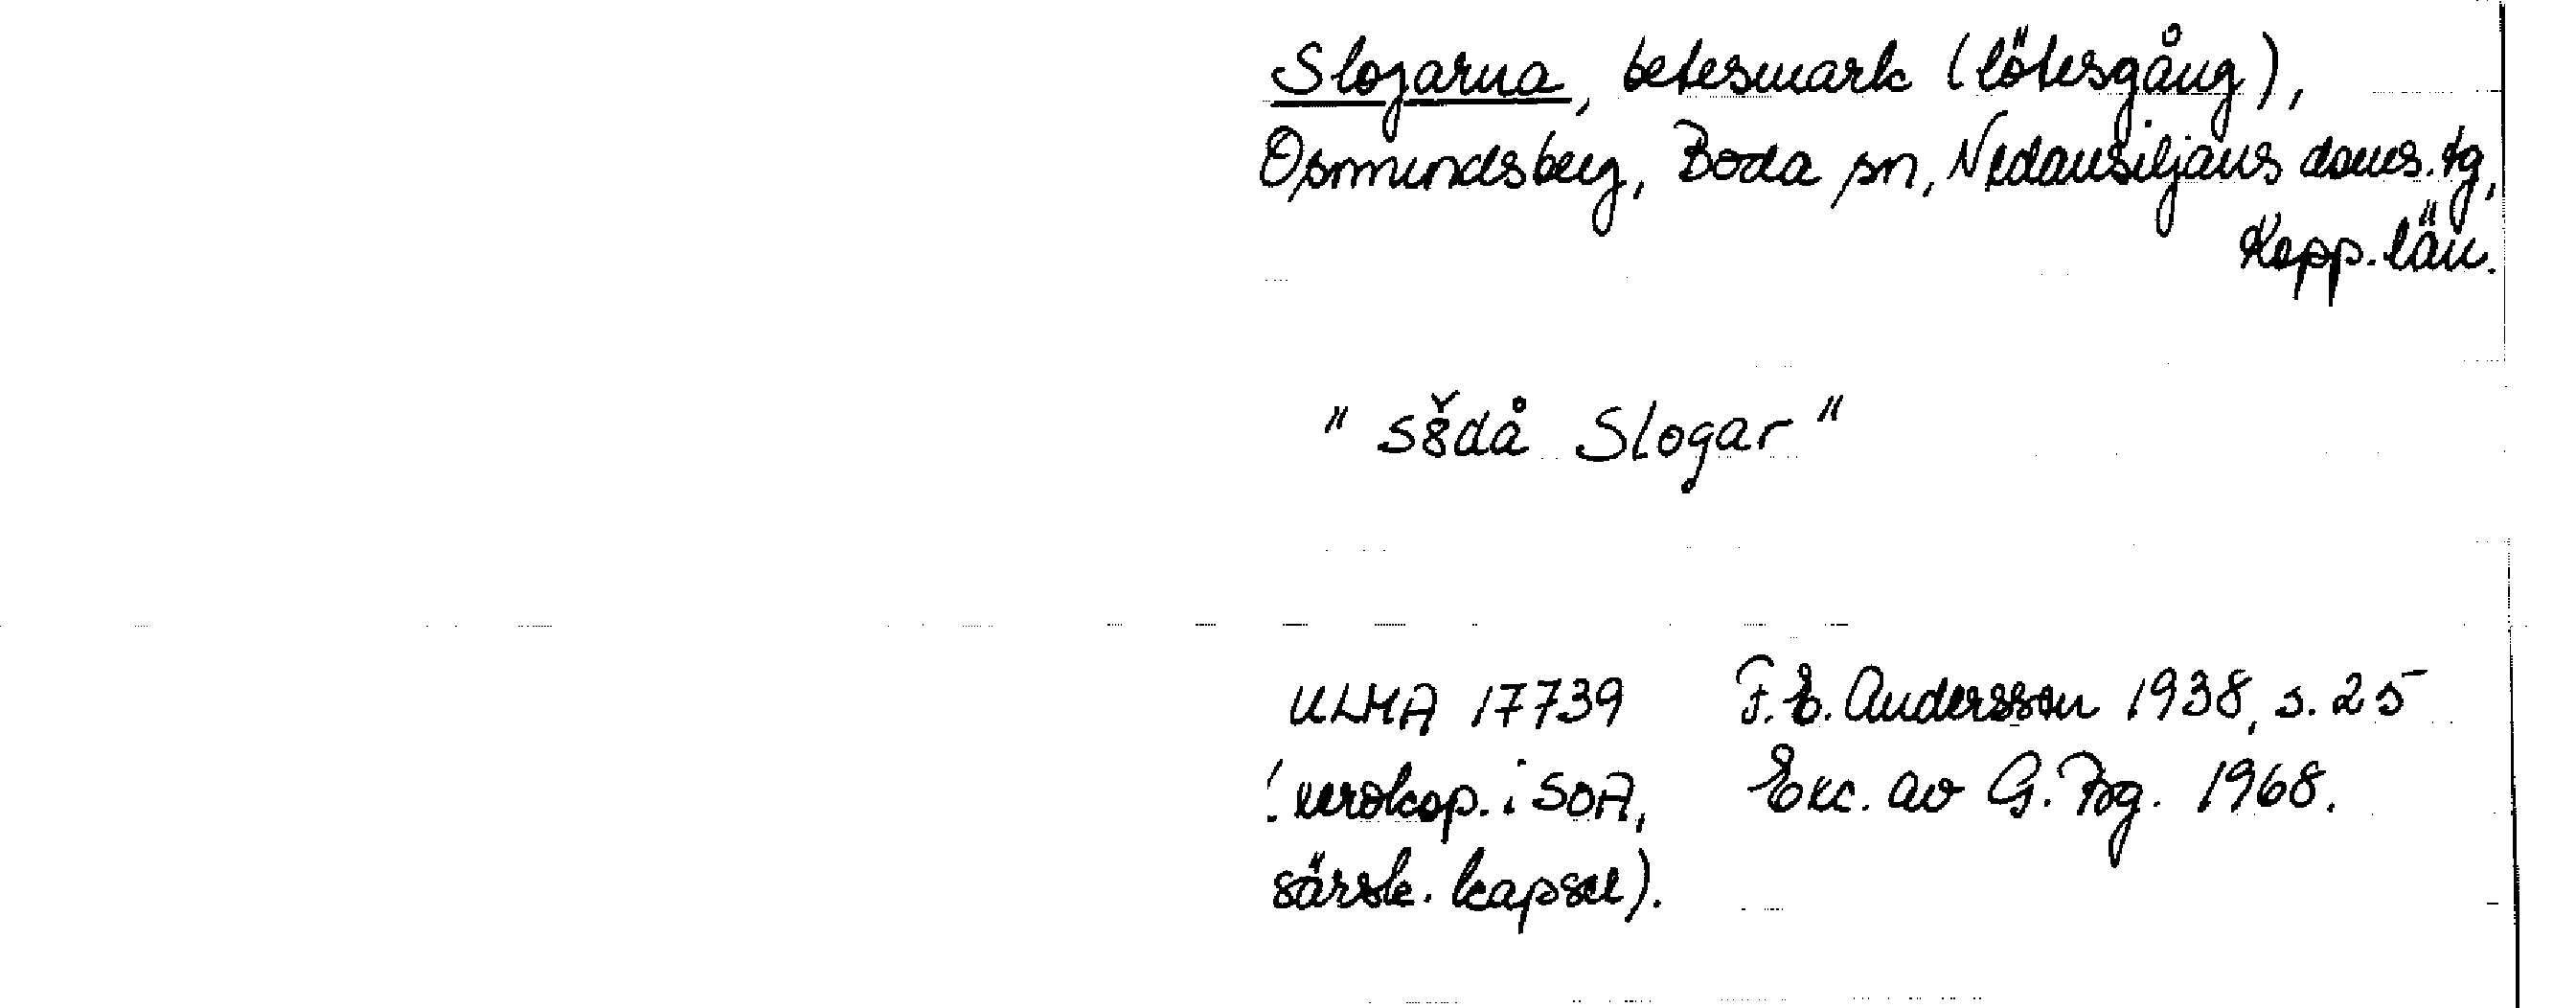 Slogarna, betesmark (lötesgång),
Osmundsberg, Boda sn, Nedansiljans doms.tg,
Kopp. län.
" Slogar "
ULMA 17739 F.E. Andersson 1938, s. 25
(xerokop. i SOA, Exc. av G. Fbg. 1968.
särsk. kapsel).